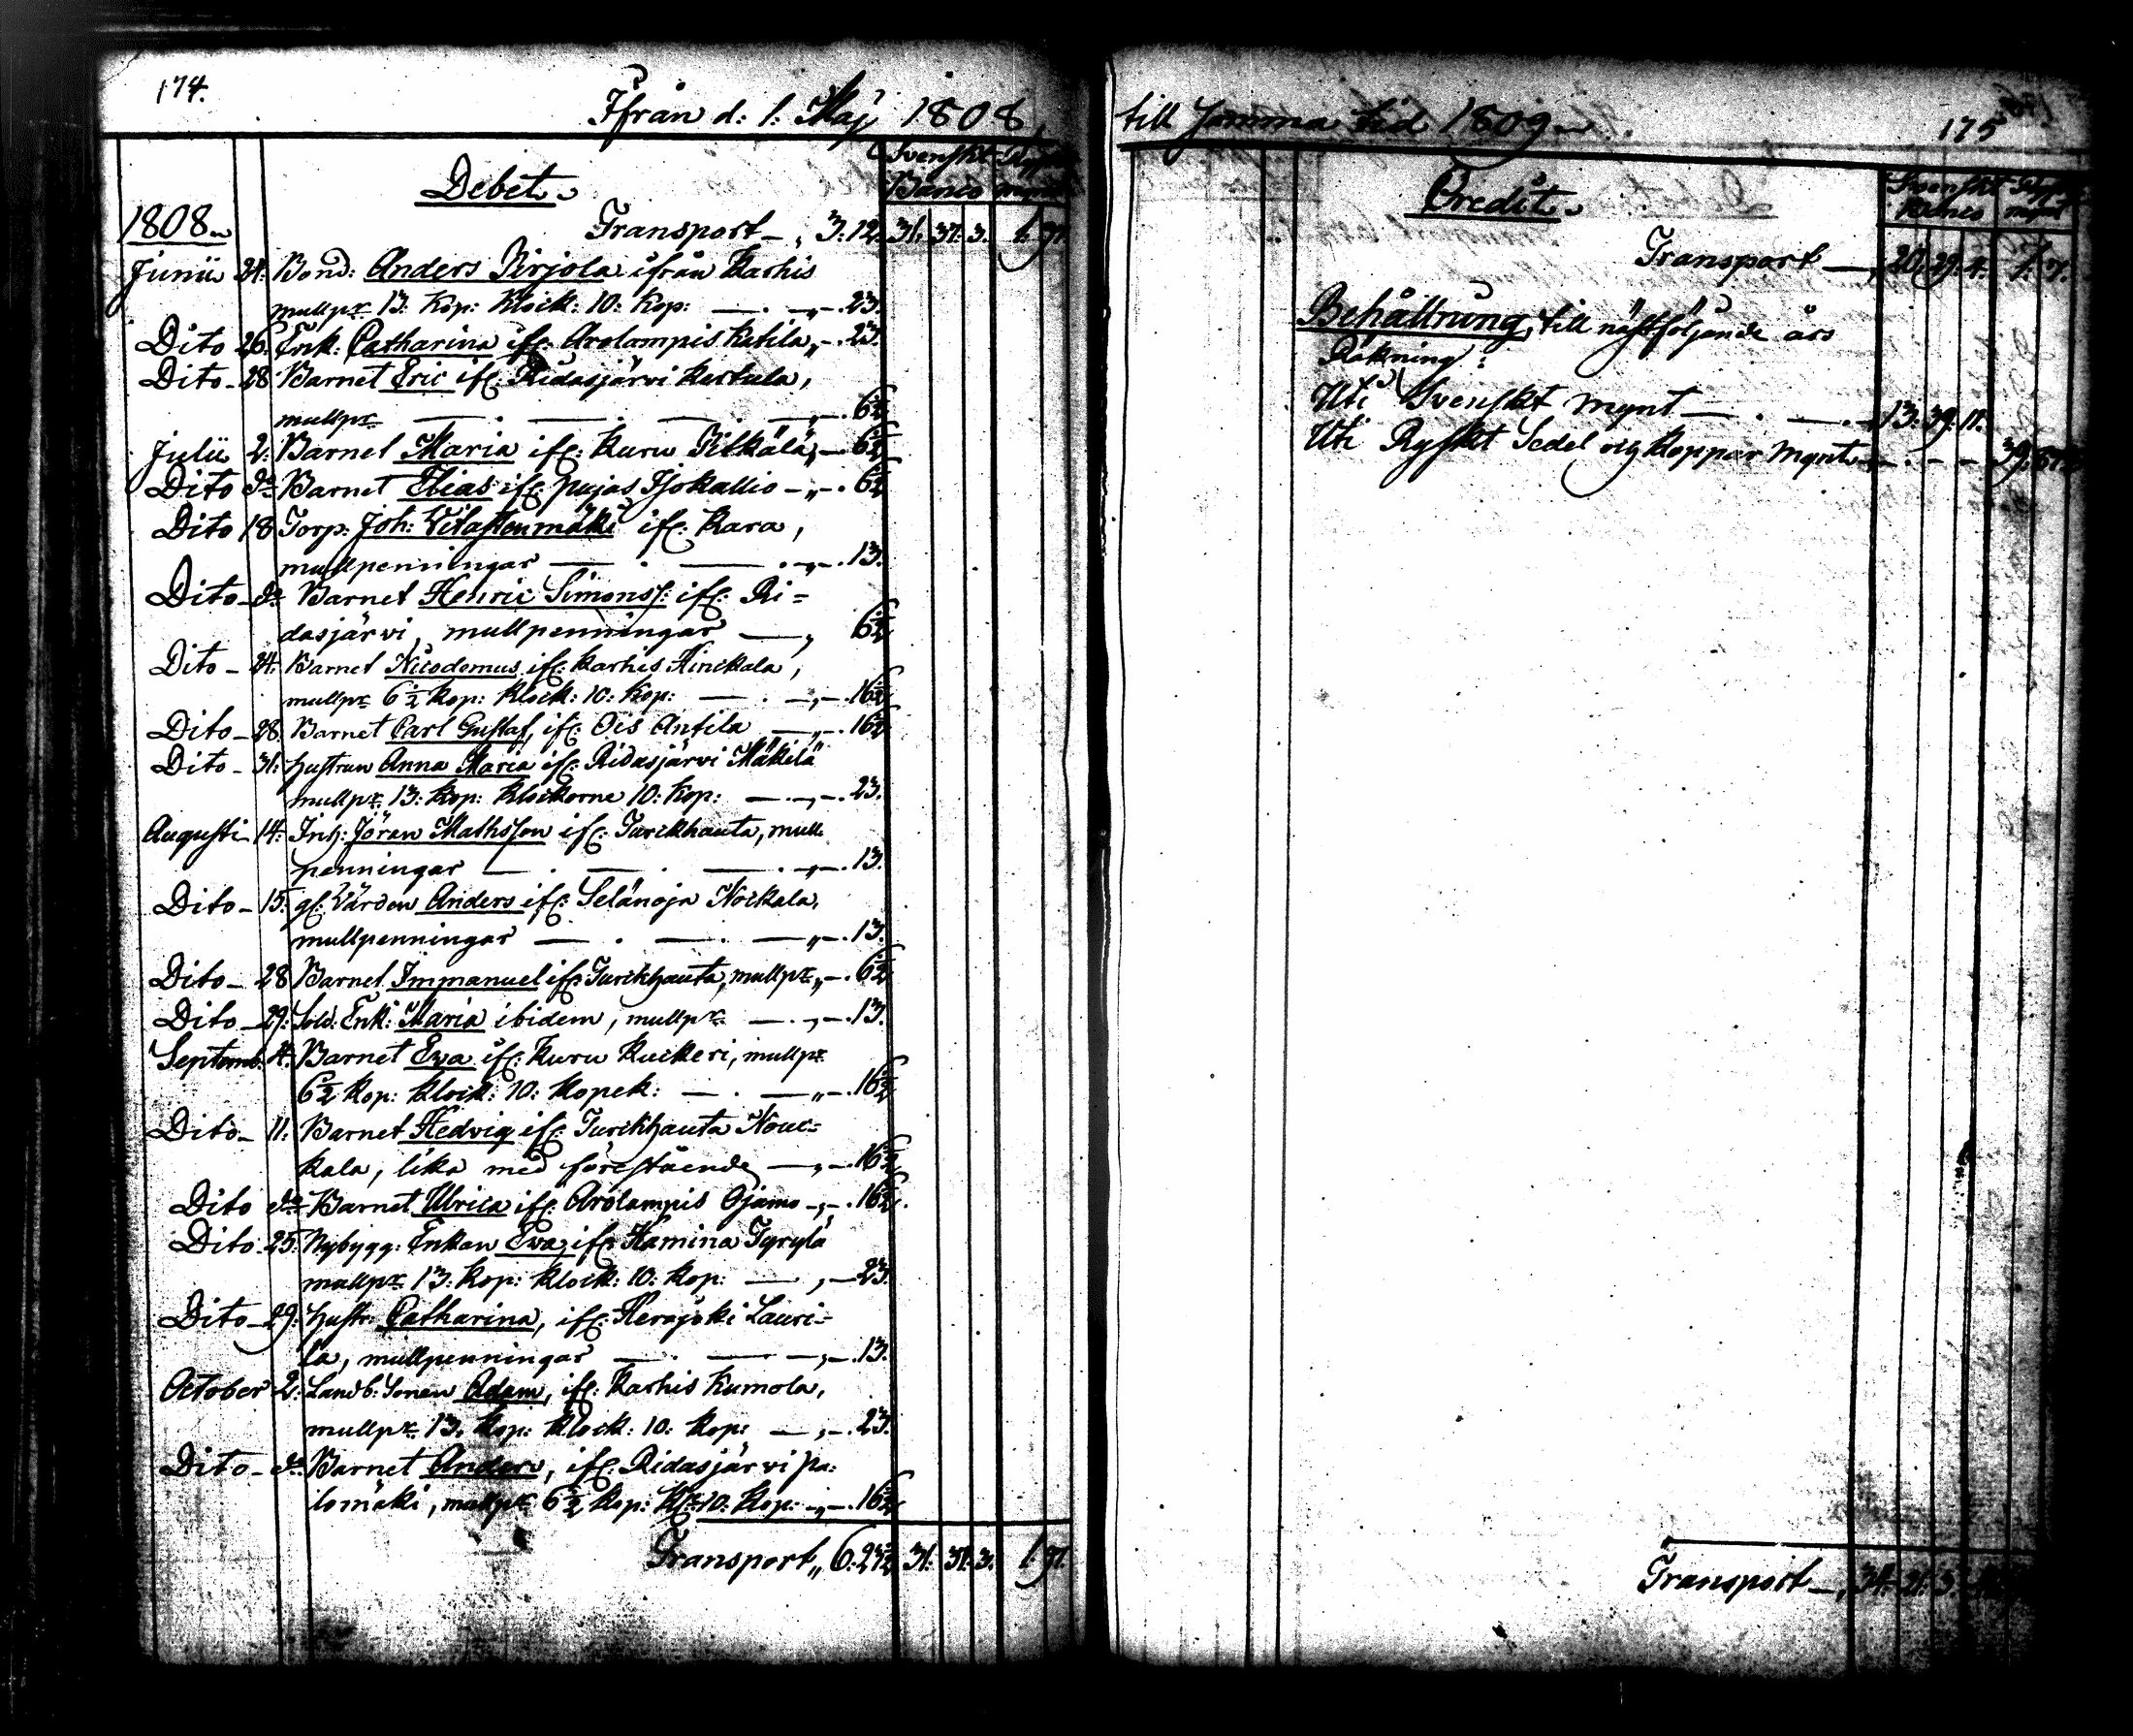 174.
Ifrån d: 1: Maj 1808,
Debet.
Svenskt
Banco
1808.
Transport — „ 3:12. 31: 37: 3. 1: 91.
Junii 24: Bond: Anders Pirjola ifrån Karhis
mullpr 13: Kop: Klock: 10: Kop: — . — „ — . 23.
Dito 26: Enk: Catharina ifr: Arolampis Katila „ — . 23.
Dito — 28 Barnet Eric ifr: Ridasjärvi Kertula,
mullpr — . — . — „ — . 6½
Julii 2: Barnet Maria ifr: Kuru Pilkälä, — 6½
Dito do Barnet Elias ifr: pujas Isokallio — „ — . 6½
Dito 18 Torp: Joh: ifr: Kara,
mullpenningar — . — . — „ — . 13.
Dito — do Barnet Henric Simonss: ifr: Ri=
dasjärvi, mullpenningar — „ 6½
Dito — 24: Barnet Nicodemus ifr: Karhis Hinckala,
mullpr 6½ Kop: Klock: 10: Kop: — . — „ — . 16½
Dito — 28. Barnet Carl Gustaf, ifr: Ois Antila — „ — . 16½
Dito — 31: Hustrun Anna Maria ifr: Ridasjärvi Mäkilä
mullpr 13: Kop: Klockorne 10: Kop: — . — „ — . 23.
Augusti — 14: Inh: Jöran Mathsson ifr: Turckhauta, mull
penningar — . — . — . — „ — . 13.
Dito — 15. gl: Värden Anders ifr: Selänoja Nockala,
mullpenningar — . — . — „ — . 13.
Dito — 28 Barnet Immanuel ifr: Turckhauta, mullpr „ — . 6½
Dito — 29: Sold: Enk: Maria ibidem, mullpr — . — „ — . 13.
Septemb: 4: Barnet Eva ifr: Kuru Kuckeri, mullpr
6½ Kop: Klock: 10: Kopek: — . — „ — . 16½
Dito — 11: Barnet Hedvig ifr: Turckhauta Nouc=
kala, lika med förestående — „ — . 16½
Dito do Barnet Ulrica ifr: Arolampis Ojamo — „ — . 16½.
Dito 25: Nybygg: Enkan Eva, ifr: Hamina Tyrylä
mullpr 13: Kop: Klock: 10: Kop: — „ — 23.
Dito — 29: Hustr: Catharina, ifr: Herajoki Lauri=
la, mullpenningar — . — — „ — . 13.
October 2: Landb: Sonen Adam, ifr: Karhis Kumola,
mullpr 13. Kop: Klock: 10: Kop: — „ — . 23.
Dito — do Barnet Anders, ifr: Ridasjärvi Pa:
lomäki, mullpr 6½ Kop: Kl: 10: Kop: — „ — . 16½
Transport „ 6:24½ 31: 37: 3. 1: 91.
till samma tid 1809.
175
Credit.
Svenskt
Banco
mynt
Transport — , 20: 29: 4: 1: 7.
Behållning, till nästföljande års
Räkning:
Uti Svenskt mynt — . — . — , 13: 39: 11.
Uti Ryskt Sedel och koppar mynt — . — — 39: 67
Transport — , 34: 21: 3.